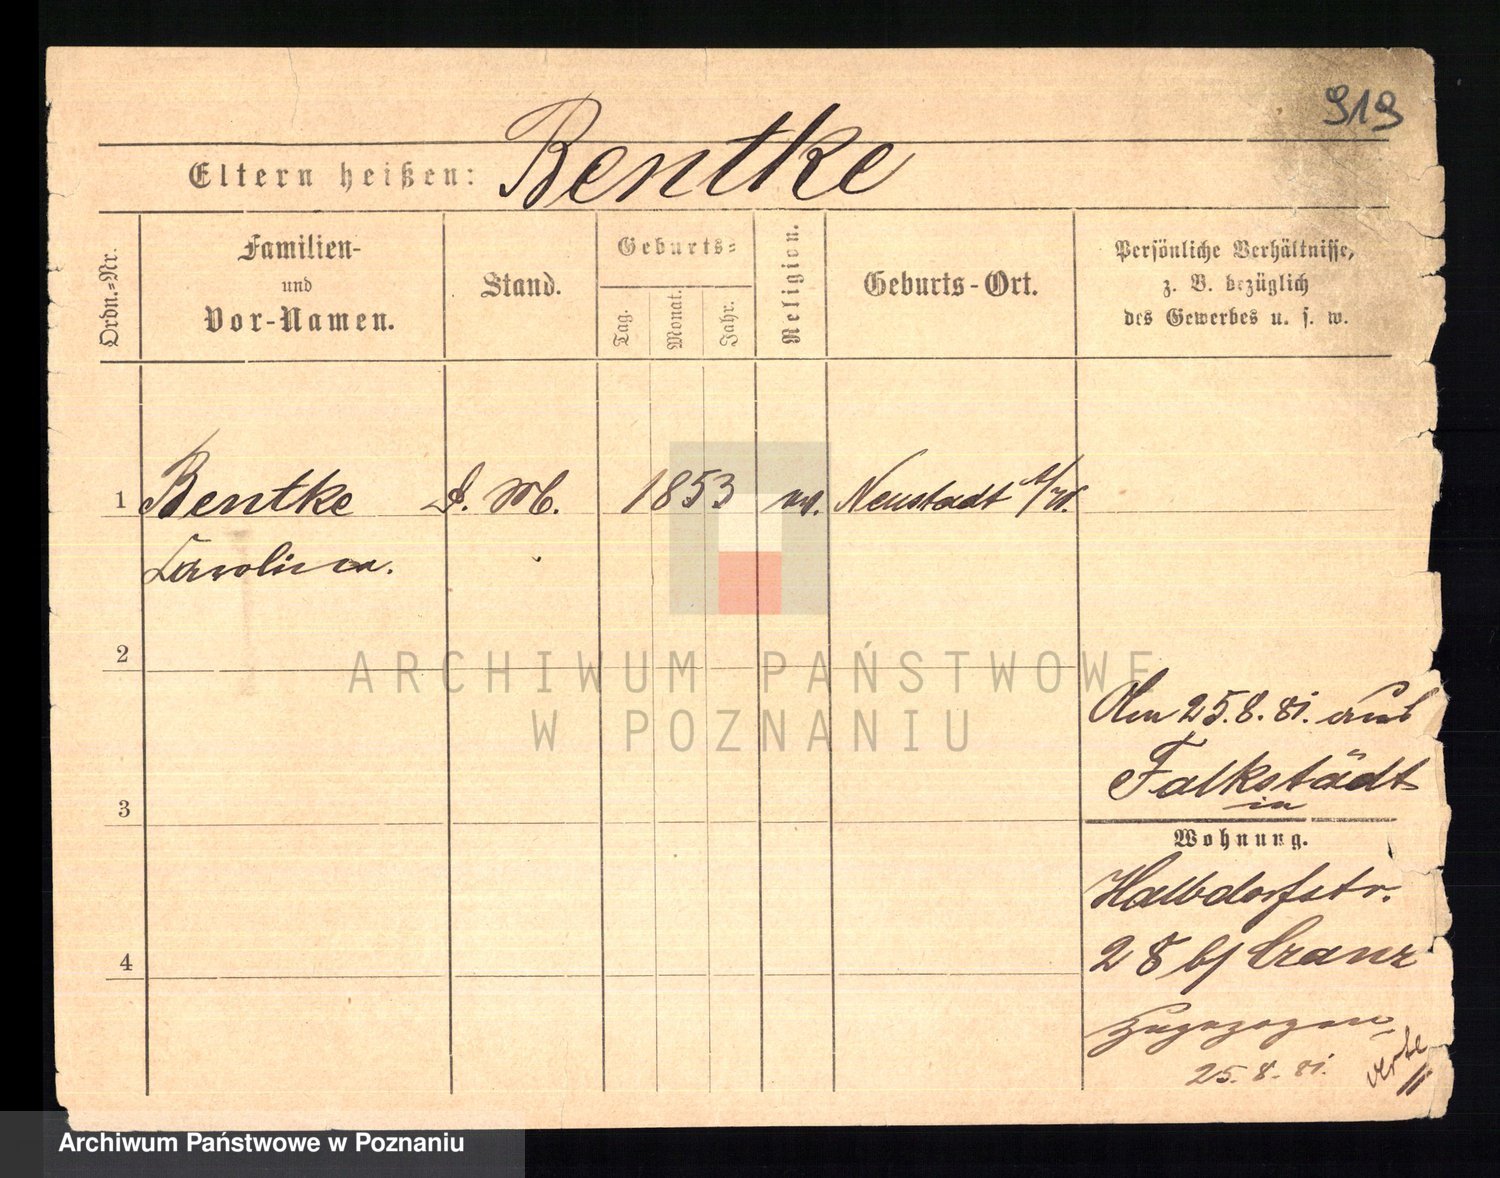 919
Bentke
Eltern heißen:
Ordn.-Nr.
Familien-
und
Vor-Namen.
Stand.
Geburts-
Tag.
Monat.
Jahr.
Religion.
Geburts-Ort.
Persönliche Verhältnisse,
z. B. bezüglich
des Gewerbes u. s. w.
1 Bentke D. M. 1853 Neustadt a/W.
Carolina.
2
ARCHIWUM PAŃSTWOWE
W POZNANIU
Am 25.8.81. aus
Falkstädt
in
3
Wohnung.
Halbdorfstr.
28 b/ Cranz
4
Zugezogen
25.8.81.
verte
Archiwum Państwowe w Poznaniu